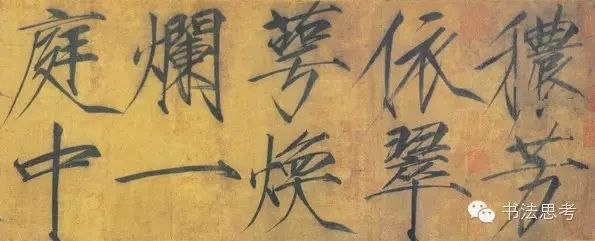 穠芳
依翠
萼煥
爛一
庭中
书法思考